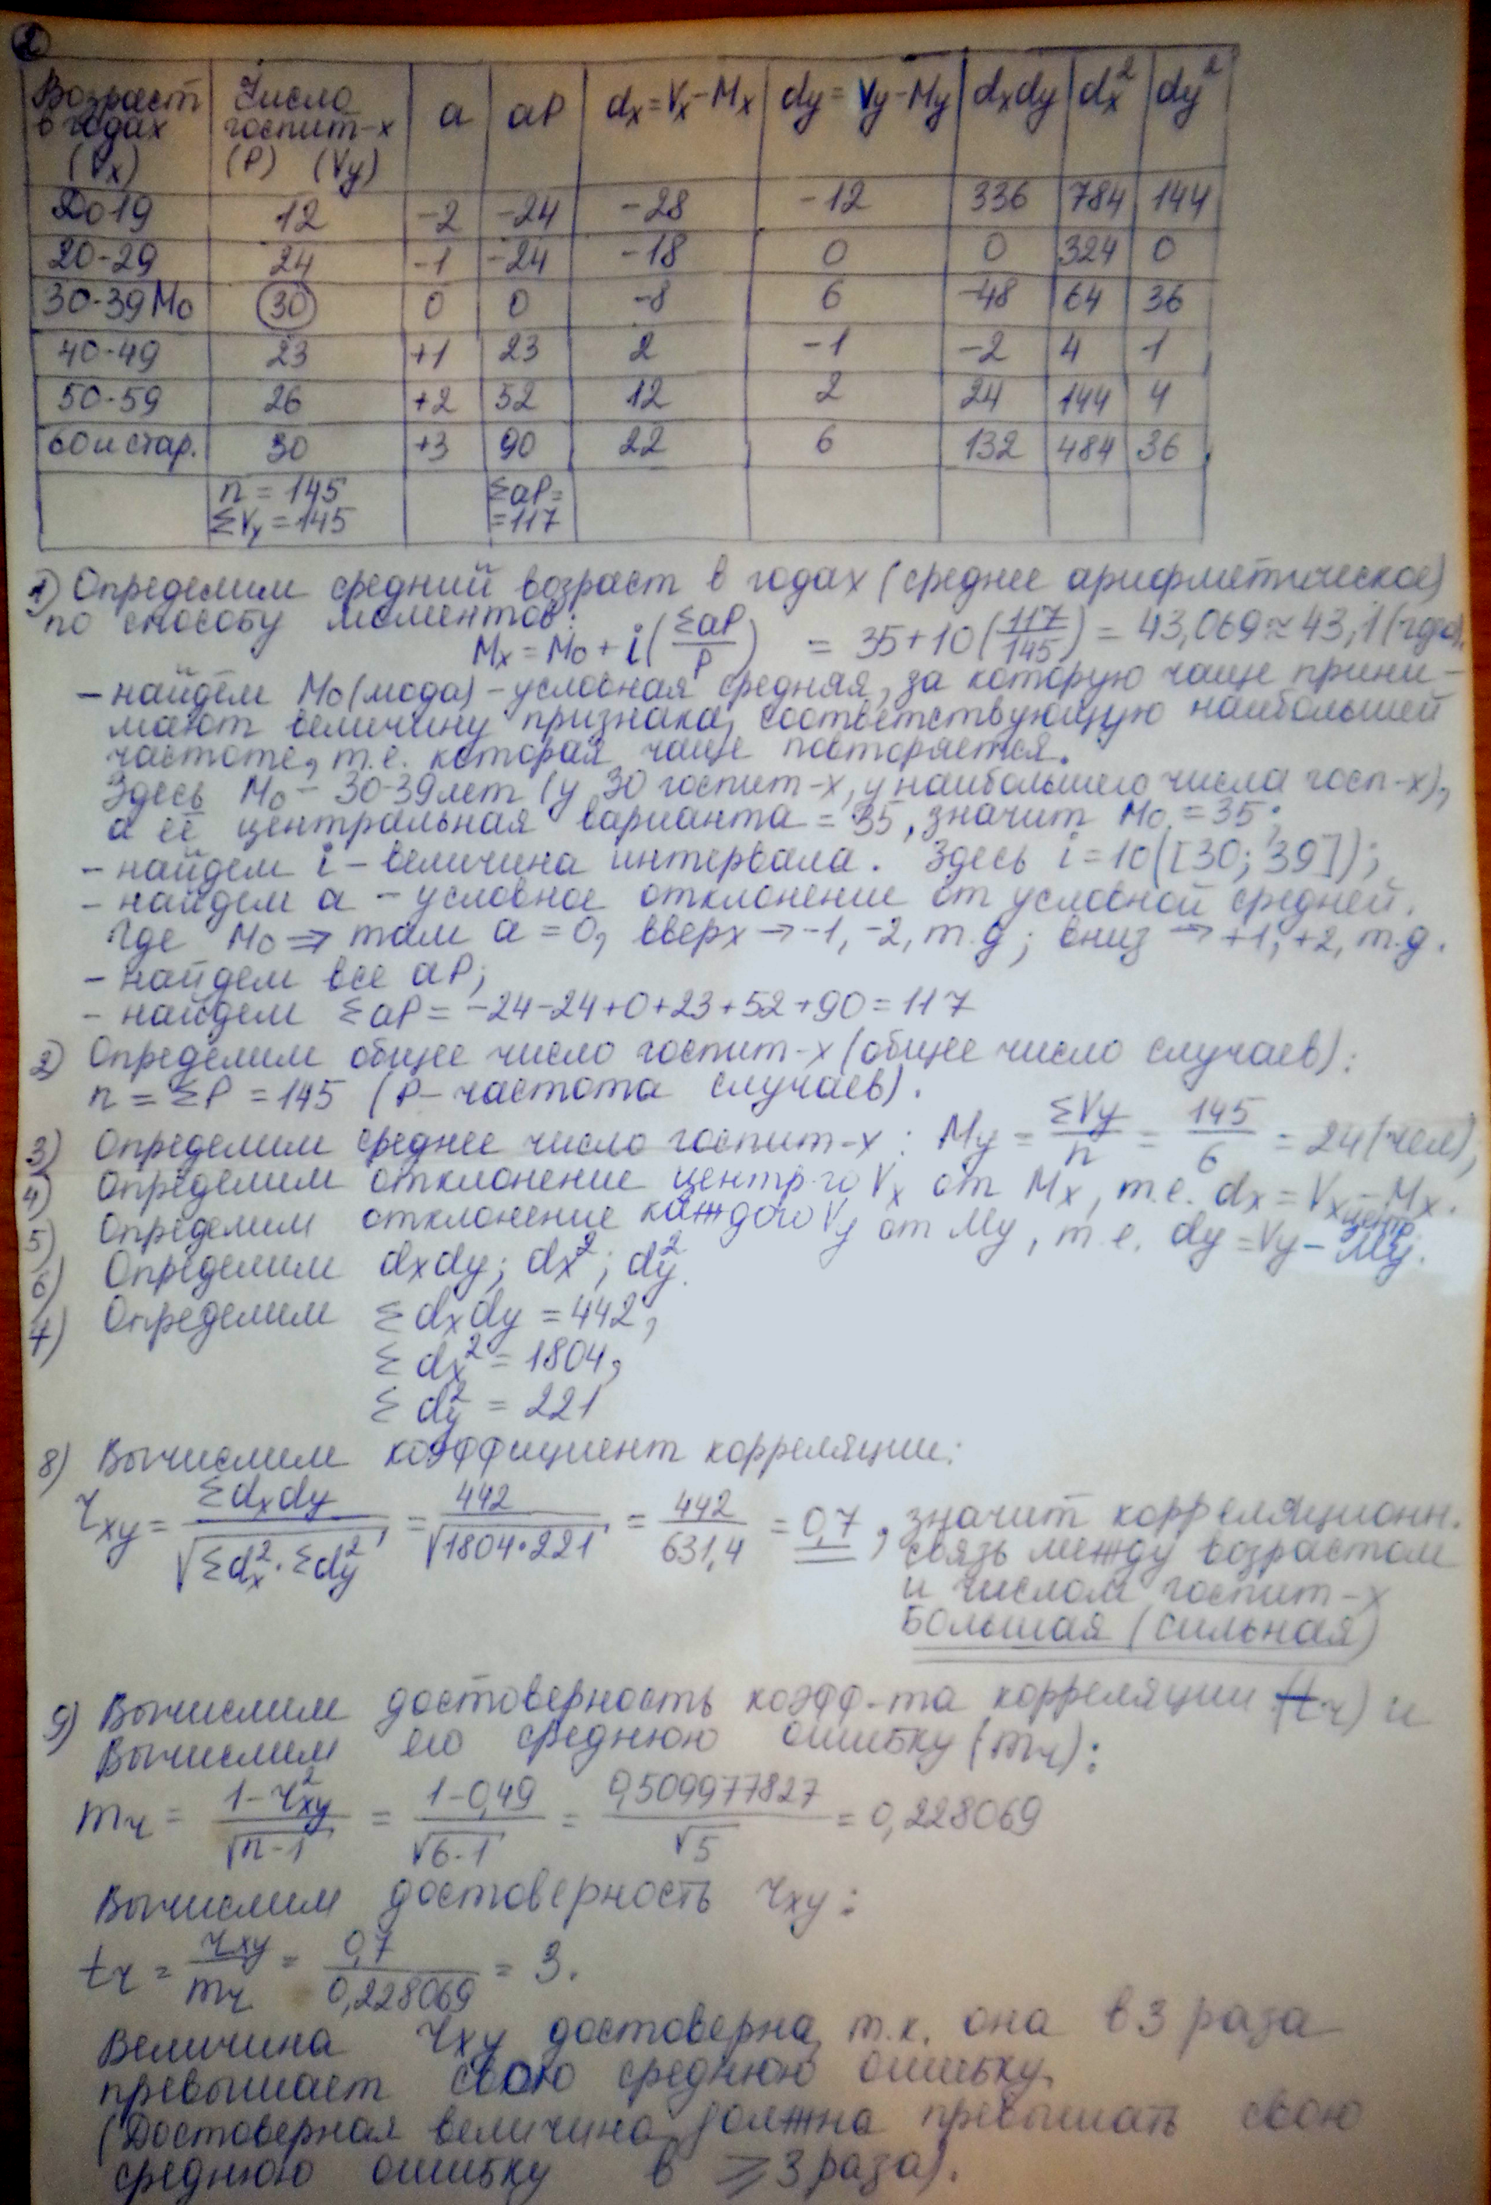 2
Возраст в годах (Vx) | Число госпит-х (P) (Vy) | a | aP | dx=Vx-Mx | dy=Vy-My | dxdy | dx² | dy²
До 19 | 12 | -2 | -24 | -28 | -12 | 336 | 784 | 144
20-29 | 24 | -1 | -24 | -18 | 0 | 0 | 324 | 0
30-39 Mo | 30 | 0 | 0 | -8 | 6 | -48 | 64 | 36
40-49 | 23 | +1 | 23 | 2 | -1 | -2 | 4 | 1
50-59 | 26 | +2 | 52 | 12 | 2 | 24 | 144 | 4
60 и стар. | 30 | +3 | 90 | 22 | 6 | 132 | 484 | 36
n = 145 | ΣaP=
ΣVy = 145 | =117
1) Определим средний возраст в годах (среднее арифметическое)
по способу моментов:
Mx = Mo + i(ΣaP/P) = 35+10(117/145) = 43,069 ≈ 43,1 (года).
- найдём Mo (мода) - условная средняя, за которую чаще прини-
мают величину признака, соответствующую наибольшей
частоте, т.е. которая чаще повторяется.
Здесь Mo - 30-39 лет (у 30 госпит-х, у наибольшего числа госп-х),
а её центральная варианта = 35, значит Mo = 35;
- найдем i - величина интервала. Здесь i = 10 ([30; 39]);
- найдем a - условное отклонение от условной средней.
Где Mo ⇒ там a = 0, вверх → -1, -2, т.д; вниз → +1, +2, т.д.
- найдем все aP;
- найдем ΣaP = -24-24+0+23+52+90 = 117
2) Определим общее число госпит-х (общее число случаев):
n = ΣP = 145 (P - частота случаев).
3) Определим среднее число госпит-х: My = ΣVy/n = 145/6 = 24 (чел),
4) Определим отклонение центр-го Vx от Mx, т.е. dx = Vx центр - Mx.
5) Определим отклонение каждого Vy от My, т.е. dy = Vy - My.
6) Определим dxdy; dx²; dy².
7) Определим Σdxdy = 442,
Σdx² = 1804,
Σdy² = 221
8) Вычислим коэффициент корреляции:
rxy = Σdxdy/√(Σdx²·Σdy²) = 442/√(1804·221) = 442/631,4 = 0,7, значит корреляционн.
связь между возрастом
и числом госпит-х
большая (сильная)
9) Вычислим достоверность коэфф-та корреляции (tr) и
вычислим его среднюю ошибку (mr):
mr = (1-r²xy)/√(n-1) = (1-0,49)/√(6-1) = 0,509977827/√5 = 0,228069
Вычислим достоверность rxy:
tr = rxy/mr = 0,7/0,228069 = 3.
Величина rxy достоверна, т.к. она в 3 раза
превышает свою среднюю ошибку.
(Достоверная величина должна превышать свою
среднюю ошибку в ⩾ 3 раза).